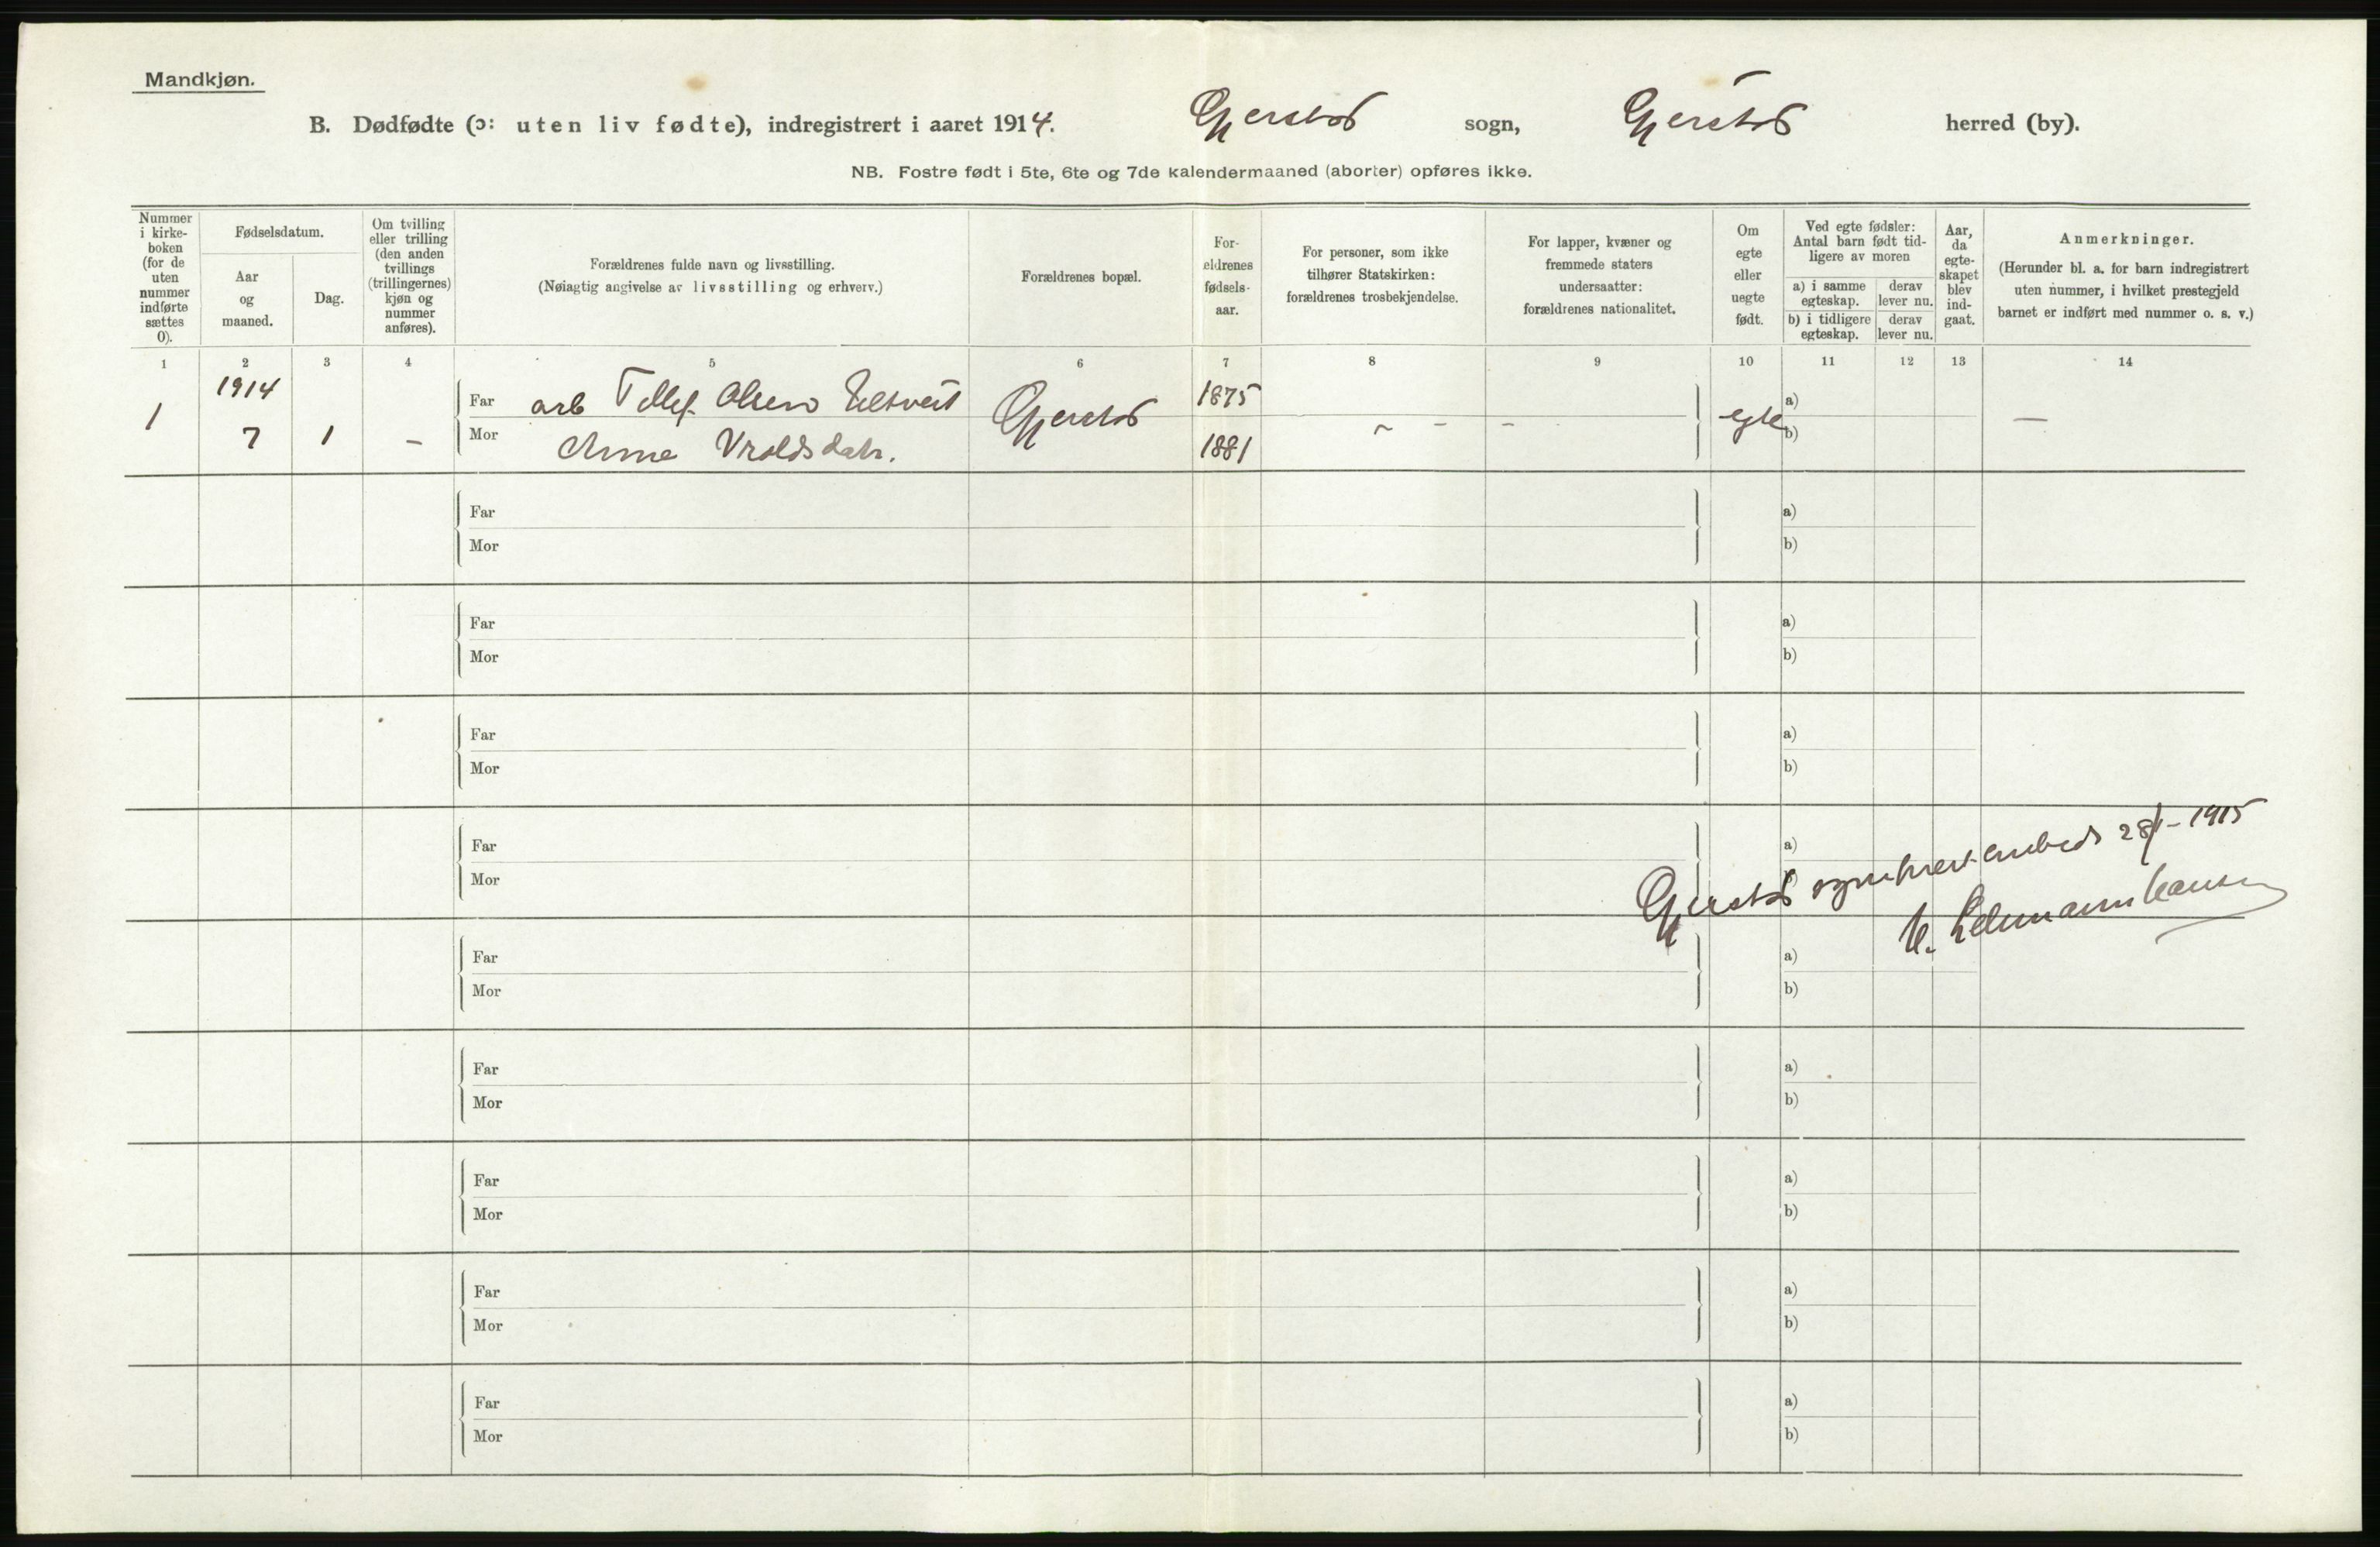 Mandkjøn.
B. Dødfødte (ɔ: uten liv fødte), indregistrert i aaret 1914. Gjerstad sogn, Gjerstad herred (by).
NB. Fostre født i 5te, 6te og 7de kalendermaaned (aborter) opføres ikke.
Nummer i kirke-boken (for de uten nummer indførte sættes 0).
Fødselsdatum.
Aar og maaned.
Dag.
Om tvilling eller trilling (den anden tvillings (trillingernes) kjøn og nummer anføres).
Forældrenes fulde navn og livsstilling.
(Nøiagtig angivelse av livsstilling og erhverv.)
Forældrenes bopæl.
For-ældrenes fødsels-aar.
For personer, som ikke tilhører Statskirken: forældrenes trosbekjendelse.
For lapper, kvæner og fremmede staters undersaatter: forældrenes nationalitet.
Om egte eller uegte født.
Ved egte fødsler: Antal barn født tid-ligere av moren
a) i samme egteskap.
derav lever nu.
b) i tidligere egteskap.
derav lever nu.
Aar, da egte-skapet blev ind-gaat.
Anmerkninger.
(Herunder bl. a. for barn indregistrert uten nummer, i hvilket prestegjeld barnet er indført med nummer o. s. v.)
1 2 3 4 5 6 7 8 9 10 11 12 13 14
1914
Far arb Tellef Olsen 1875 a)
1 7 1 – Gjerstad – – – egte –
Mor Anne Vroldsdatr. 1881 b)
Far a)
Mor b)
Far a)
Mor b)
Far a)
Mor b)
Far a)
Mor
Gjerstad sogneprestembede 28/1–1915
Lehmann Hansen
Far a)
Mor b)
Far a)
Mor b)
Far a)
Mor b)
Far a)
Mor b)
Far a)
Mor b)